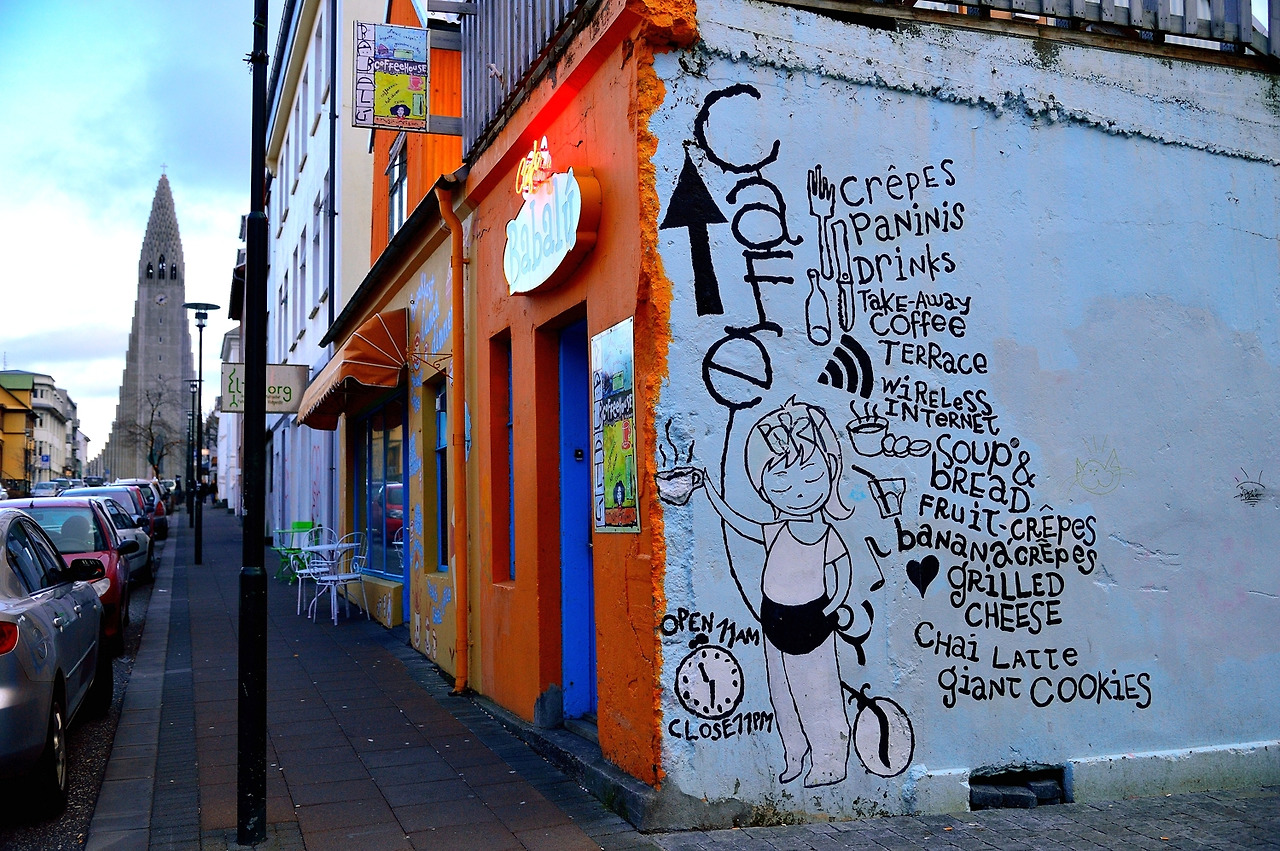 BABALÚ
COFFEEHOUSE
Café
Babalú
COFFEEHOUSE
Café
crêpes
paninis
Drinks
TAKE-AWAY
coffee
Terrace
wireless
INTERNET
SOUP &
BREAD
FRUIT-CRÊPES
bananacrêpes
GRILLED
CHEESE
CHai Latte
giant COOKIES
OPEN 11AM
CLOSE 11PM